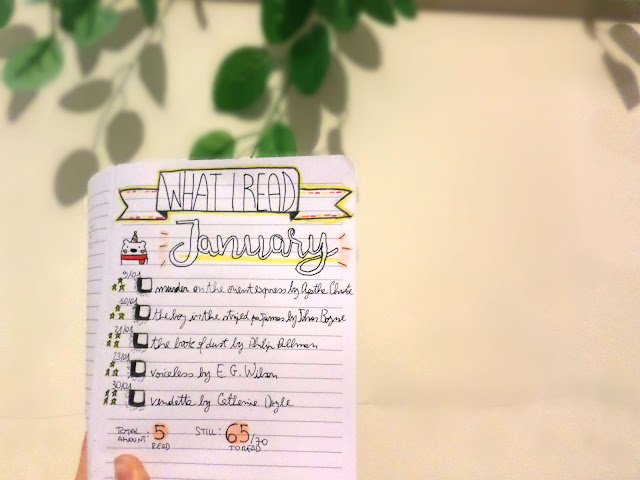 WHAT I READ
January
9/01
murder on the orient express by Agatha Christie
10/01
the boy in the striped pajamas by Boyne
21/01
the book of dust by Philip Pullman
23/01
voiceless by E. G. Wilson
30/01
vendetta by Catherine Doyle
TOTAL AMOUNT: 5 READ STILL: 65/70 TO READ